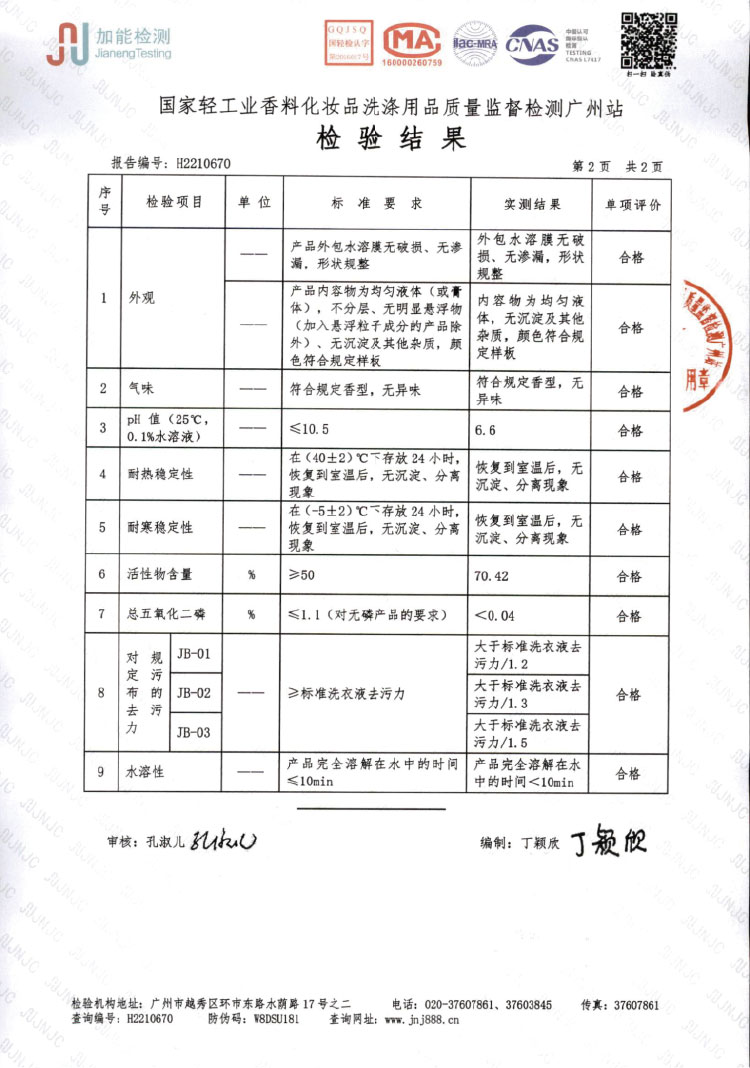 加能检测
JianengTesting
GQJSQ
国轻检认字
MA
160000260759
ilac-MRA
CNAS
TESTING
扫一扫 验真伪
国家轻工业香料化妆品洗涤用品质量监督检测广州站
检验结果
报告编号：H2210670
第2页 共2页
序号 检验项目 单位 标准要求 实测结果 单项评价
1 外观
—— 产品外包水溶膜无破损、无渗漏，形状规整 外包水溶膜无破损、无渗漏，形状规整 合格
—— 产品内容物为均匀液体（或膏体），不分层、无明显悬浮物（加入悬浮粒子成分的产品除外）、无沉淀及其他杂质，颜色符合规定样板 内容物为均匀液体，无沉淀及其他杂质，颜色符合规定样板 合格
2 气味 —— 符合规定香型，无异味 符合规定香型，无异味 合格
3 pH 值（25℃，0.1%水溶液） —— ≤10.5 6.6 合格
4 耐热稳定性 —— 在(40±2)℃下存放24小时，恢复到室温后，无沉淀、分离现象 恢复到室温后，无沉淀、分离现象 合格
5 耐寒稳定性 —— 在(-5±2)℃下存放24小时，恢复到室温后，无沉淀、分离现象 恢复到室温后，无沉淀、分离现象 合格
6 活性物含量 % ≥50 70.42 合格
7 总五氧化二磷 % ≤1.1（对无磷产品的要求） ＜0.04 合格
8 对规定污布的去污力 —— ≥标准洗衣液去污力 合格
JB-01 大于标准洗衣液去污力/1.2
JB-02 大于标准洗衣液去污力/1.3
JB-03 大于标准洗衣液去污力/1.5
9 水溶性 —— 产品完全溶解在水中的时间≤10min 产品完全溶解在水中的时间＜10min 合格
质量监督检测广州站
用章
审核：孔淑儿 孔淑儿
编制：丁颖欣 丁颖欣
检验机构地址：广州市越秀区环市东路水荫路17号之二 电话：020-37607861、37603845 传真：37607861
查询编号：H2210670 防伪码：W8DSU181 查询网址：www.jnj888.cn